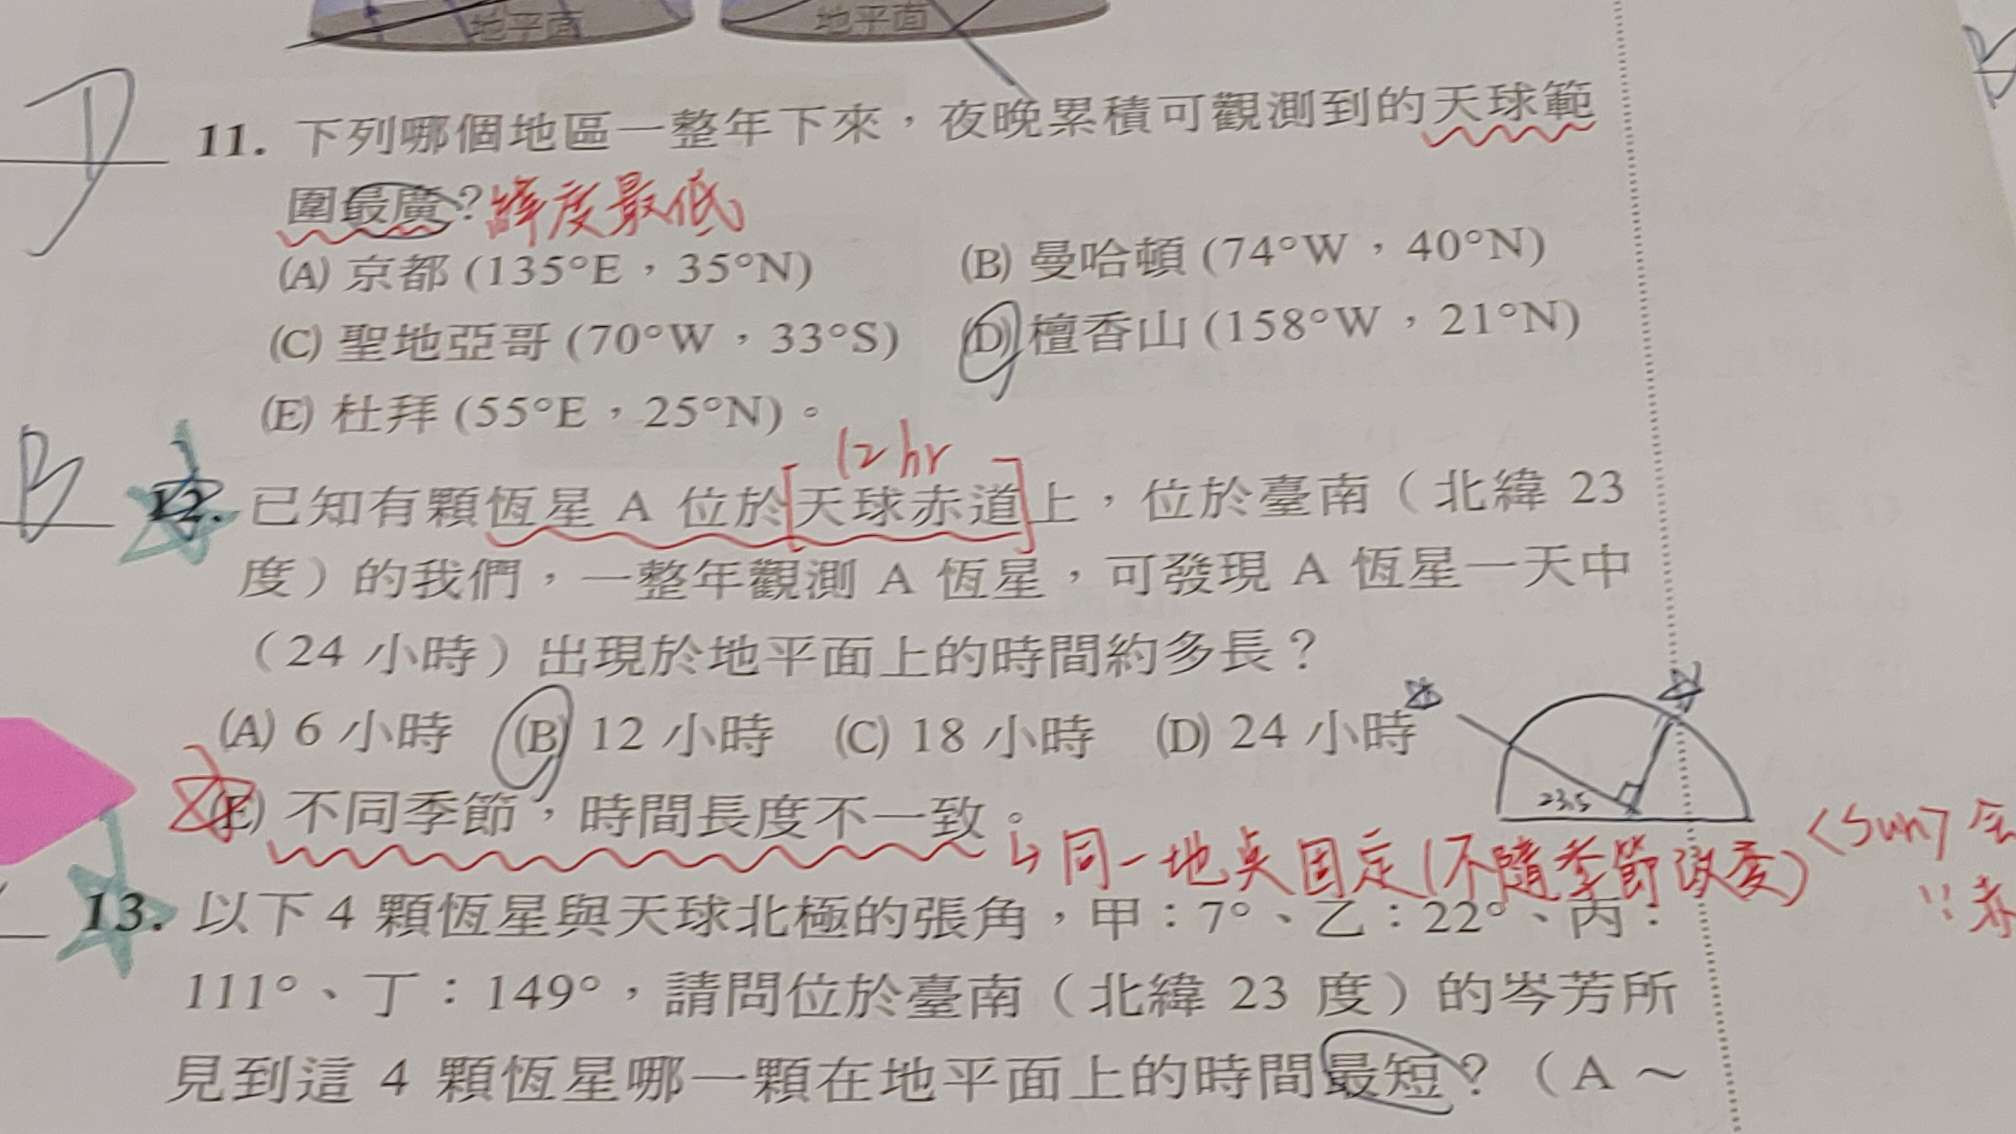 地平面 地平面
D
11. 下列哪個地區一整年下來，夜晚累積可觀測到的天球範
圍最廣？緯度最低
(A) 京都 (135°E，35°N) (B) 曼哈頓 (74°W，40°N)
(C) 聖地亞哥 (70°W，33°S) (D) 檀香山 (158°W，21°N)
(E) 杜拜 (55°E，25°N)。
12 hr
B
12. 已知有顆恆星 A 位於[天球赤道]上，位於臺南（北緯 23
度）的我們，一整年觀測 A 恆星，可發現 A 恆星一天中
（24 小時）出現於地平面上的時間約多長？
(A) 6 小時 (B) 12 小時 (C) 18 小時 (D) 24 小時
23.5
(E) 不同季節，時間長度不一致。
↳ 同一地點固定(不隨季節改變) <sun> 会
∵ 赤
13. 以下 4 顆恆星與天球北極的張角，甲：7°、乙：22°、丙：
111°、丁：149°，請問位於臺南（北緯 23 度）的岑芳所
見到這 4 顆恆星哪一顆在地平面上的時間最短？（A～